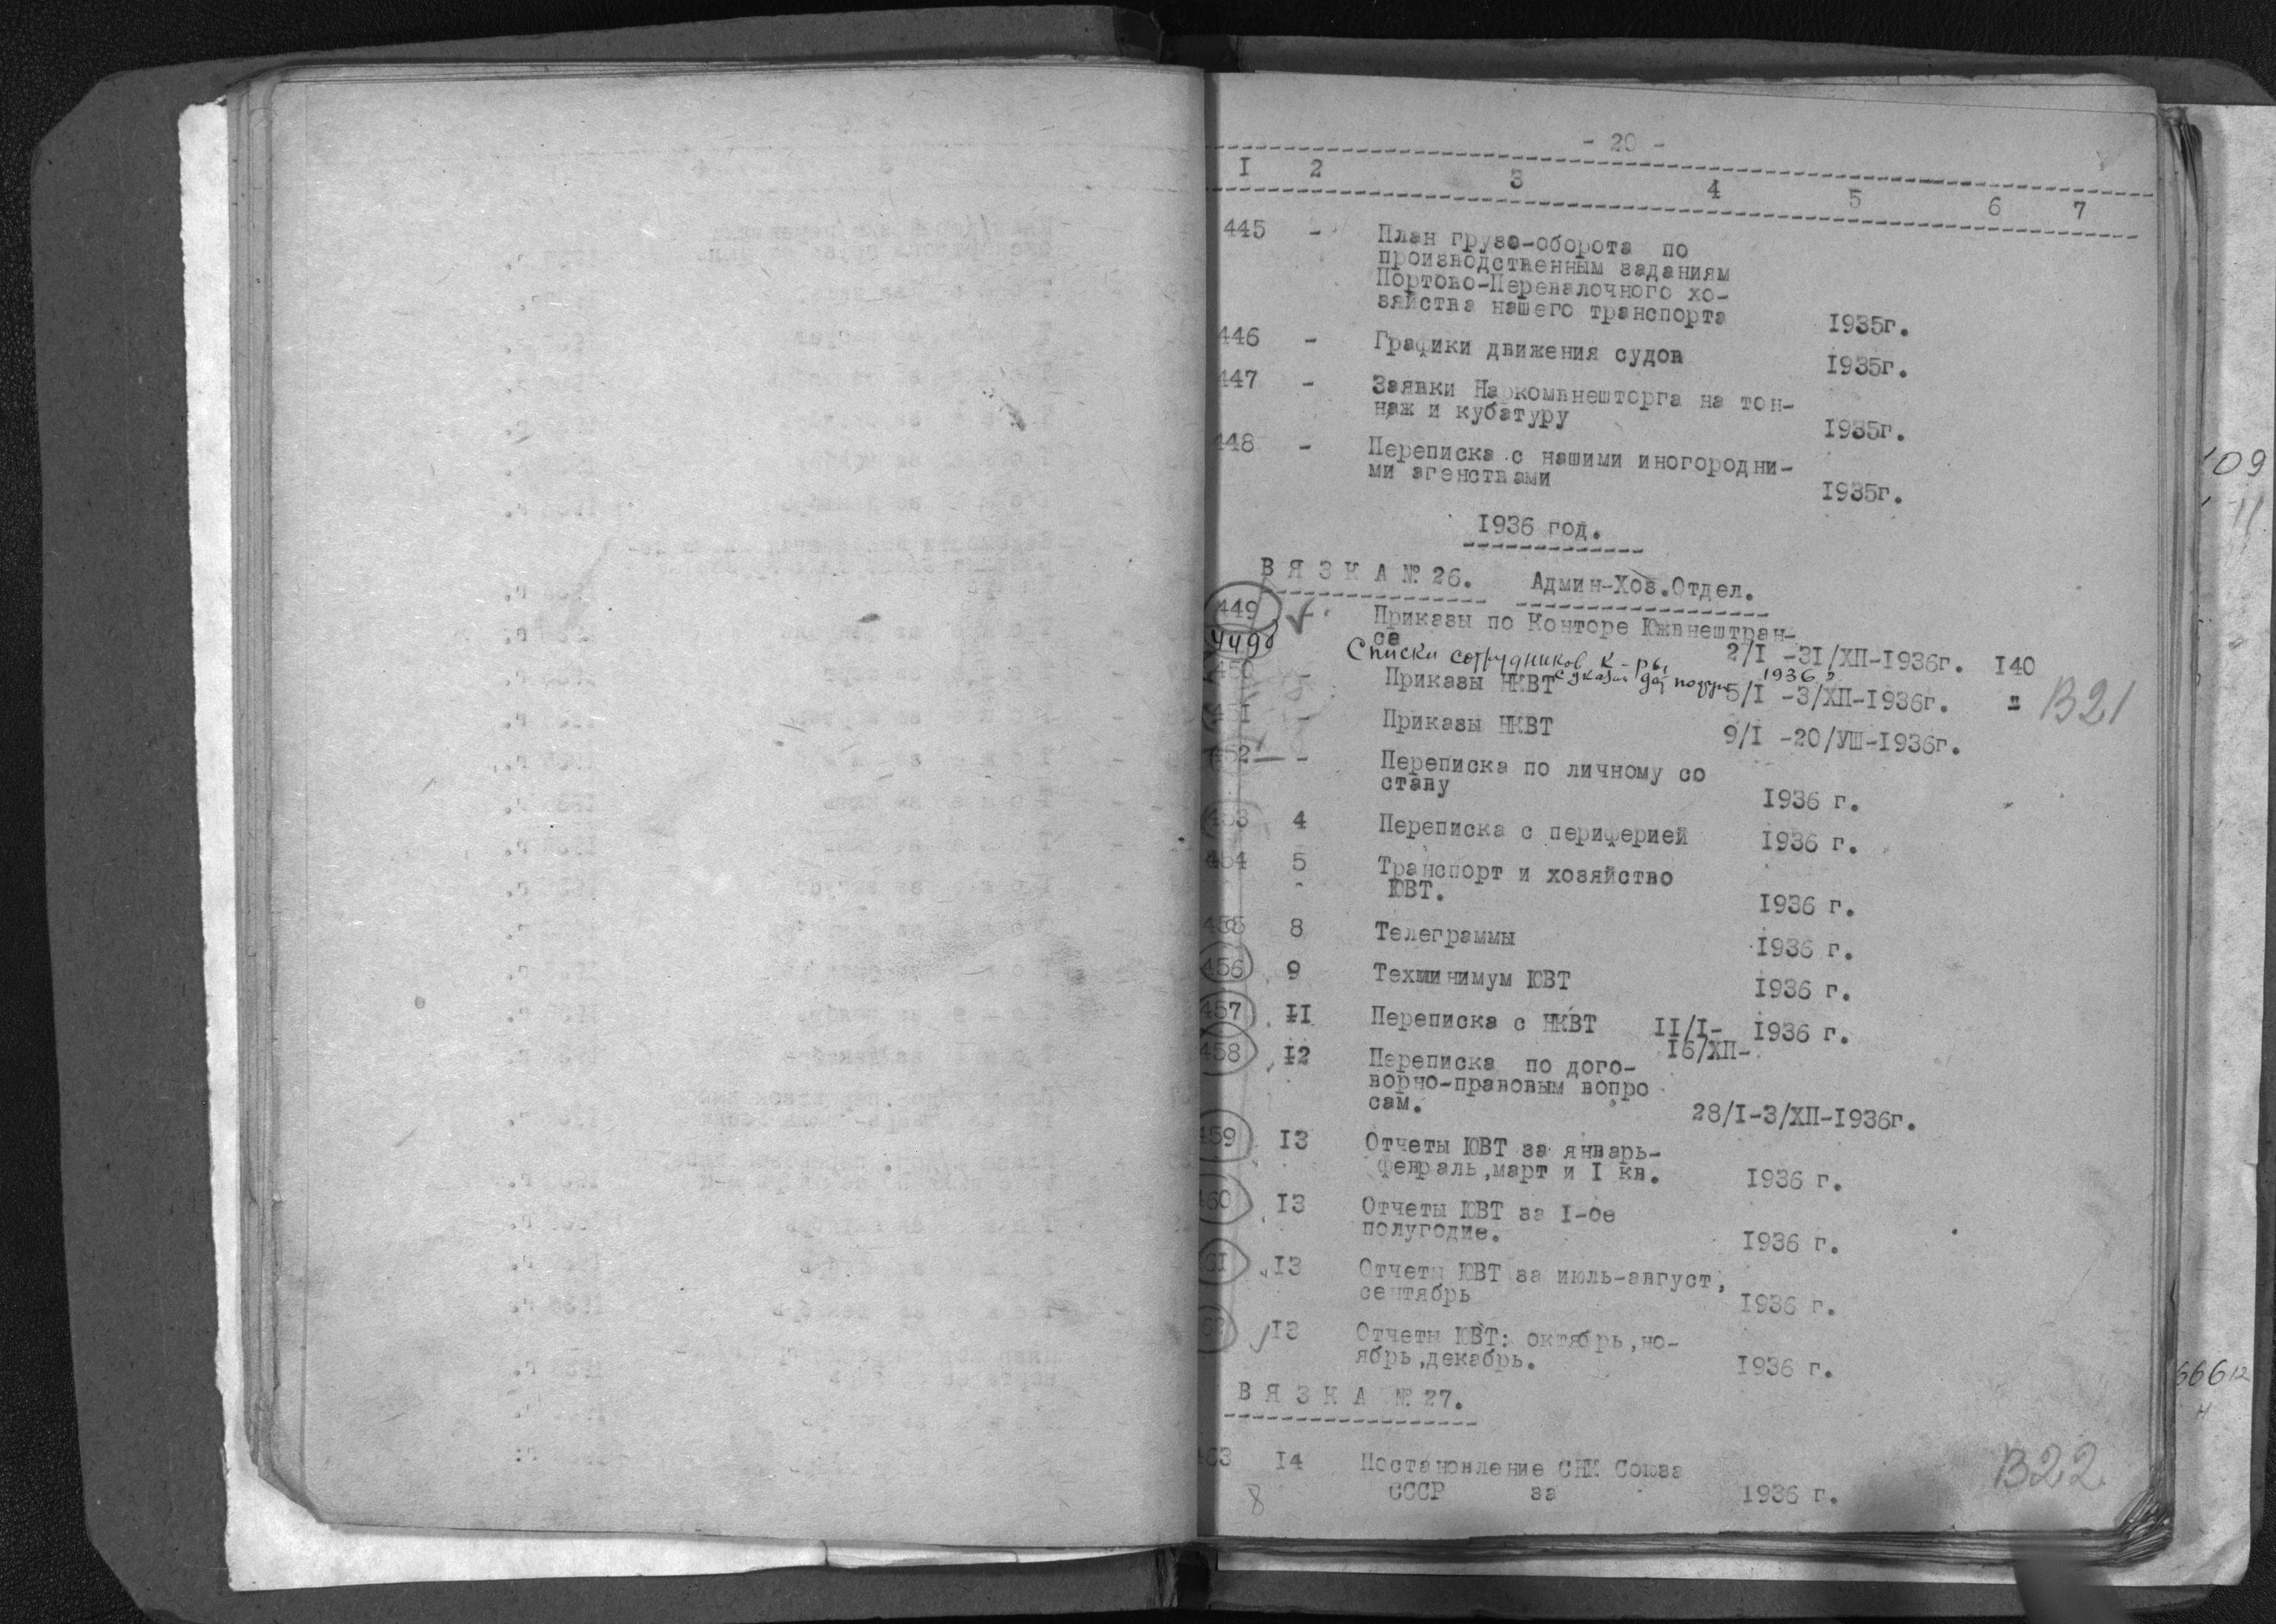 - 20 -
I 2 3 4 5 6 7
445 - План грузо-оборота по
производственным заданиям
Портово-Перевалочного хо-
зяйства нашего транспорта 1935г.
446 - Графики движения судов 1935г.
447 - Заявки Наркомвнешторга на тон-
наж и кубатуру 1935г.
448 - Переписка с нашими иногородни-
ми агенствами 1935г.
1936 год.
ВЯЗКА № 26. Админ-Хоз.Отдел.
449 - Приказы по Конторе Южвнештран-
са 2/I -31/ХП-1936г. 140
449а Списки сотрудников к-ры 1936 г
450 - Приказы НКВТ 5/I -3/ХП-1936г. " В21
451 - Приказы НКВТ 9/I -20/УШ-1936г.
452 - Переписка по личному со
ставу 1936 г.
453 4 Переписка с периферией 1936 г.
454 5 Транспорт и хозяйство
ЮВТ. 1936 г.
455 8 Телеграммы 1936 г.
456 9 Техминимум ЮВТ 1936 г.
457 II Переписка с НКВТ II/I- 1936 г.
16/ХП-
458 I2 Переписка по дого-
ворно-правовым вопро
сам. 28/I-3/ХП-1936г.
459 I3 Отчеты ЮВТ за январь-
февраль,март и I кв. 1936 г.
460 I3 Отчеты ЮВТ за I-ое
полугодие. 1936 г.
61 I3 Отчеты ЮВТ за июль-август,
сентябрь 1936 г.
62 I3 Отчеты ЮВТ: октябрь,но-
ябрь,декабрь. 1936 г.
ВЯЗКА № 27.
463 I4 Постановление СНК Союза
СССР за 1936 г.
В22
8
109
11
66612